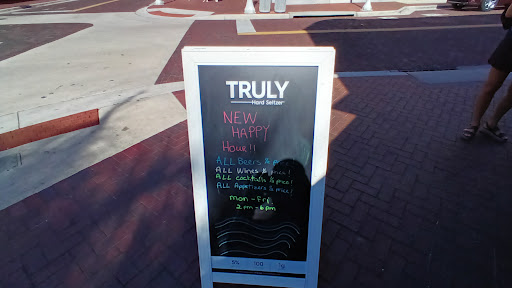 TRULY
Hard Seltzer
NEW
HAPPY
Hour!!
ALL Beers ½ price!
ALL Wines ½ price!
ALL Cocktails ½ price!
ALL Appetizers ½ price!
mon - Fri
2 pm - 6 pm
5%
100
1g